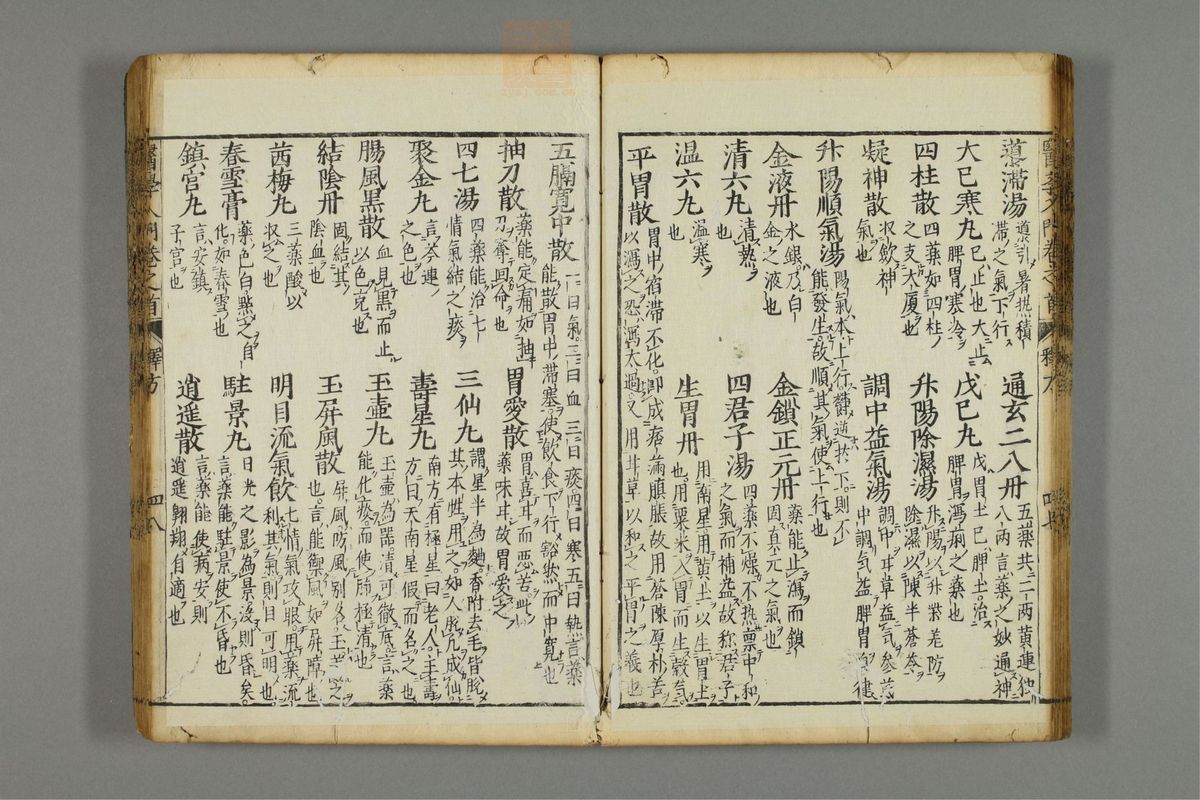 導滯湯 導引暑熱積滯之氣下行
通玄二八丹 五藥共二十兩黄連独八兩言藥之妙通神
大已寒丸 已止也大止脾胃寒冷
戊巳丸 戊胃土巳脾土治脾胃瀉痢之藥也
四柱散 四藥如四柱之支大厦也
升陽除濕湯 升陽以升柴羌防除濕以陳半蒼苓
凝神散 収歛神氣也
調中益氣湯 調中耳草益气参芪中調气益脾胃自健
升陽順氣湯 陽氣本上行欝遏於下則不能發生故順其氣使上行也
金液丹 水銀乃白金之液也
金鎖正元丹 藥能止瀉而鎖固真元之氣也
清六丸 清熱也
四君子湯 四藥不燥不热禀中和之氣而補益故称君子
温六丸 温寒也
生胃丹 用南星用黄土以生胃土也用粟米入胃而生穀气
平胃散 胃中宿滯不化即成痞滿䐜脹故用蒼陳厚朴苦以瀉之恐瀉太過又用甘草以和之平胃之義也
五膈寛中散 一曰氣二曰血三曰痰四曰寒五曰热言藥能散胃中滯塞使飲食下行豁然而中寛也
抽刀散 藥能定痛如抽刀奪回命也
胃愛散 胃喜甘而惡苦此藥味甘故胃愛之
四七湯 四藥能治七情氣結之痰
三仙丸 謂星半為麯香附去毛皆脱其本性用之如人脱凡成仙
聚金丸 言芩連之色也
壽星丸 南方有極星曰老人主壽方曰天南星假而名之也
腸風黒散 血見黒而止以色克也
玉壷丸 玉壷為器清可徹底言藥能化痰而使肺極清也
結陰丹 固結其陰血也
玉屏風散 屏風防風别名玉芪之也言能禦風如屏障也
茜梅丸 三藥酸以収之也
明目流氣飲 七情气攻眼用藥流利其气則目可明也
春雪膏 藥色白點之自化如春雪也
駐景丸 日光之影為景没則昏矣言藥能駐景使不昏也
鎮宮丸 言安鎮子宮也
逍遥散 言藥能使病安則逍遥翺翔自適也
醫學入門卷之首
釋方
四八